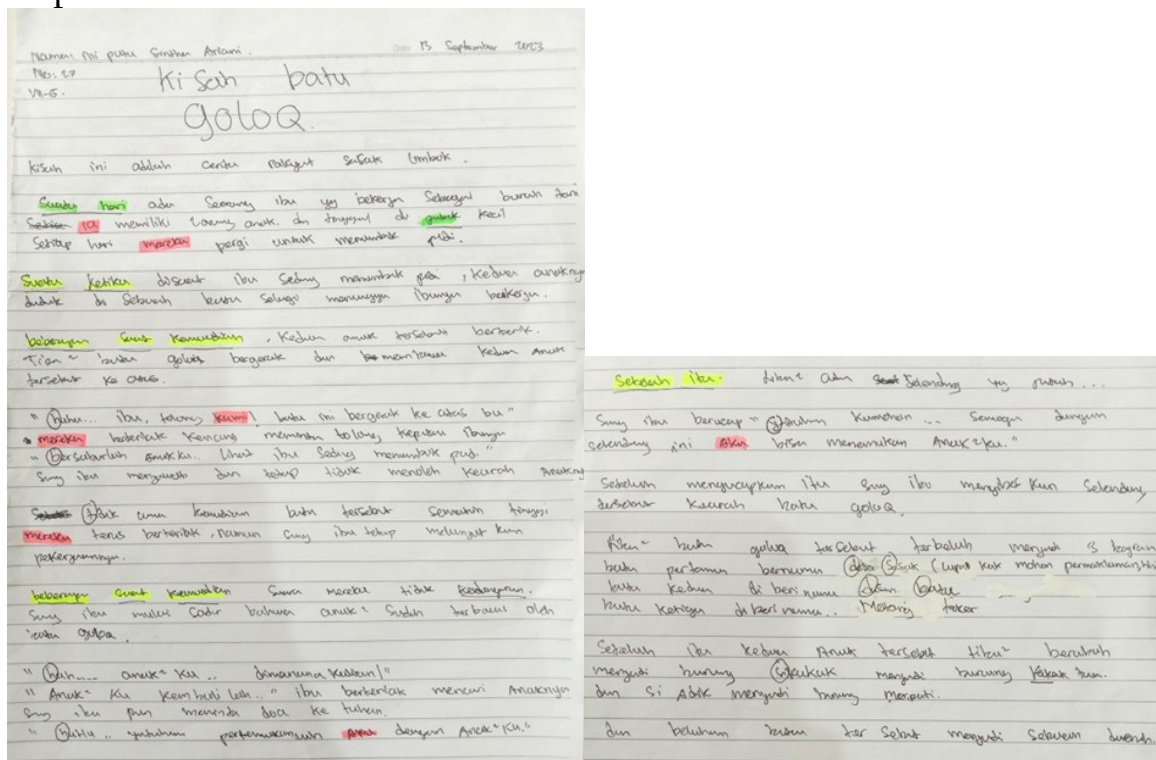 Nama: Ni putu Sintha Artani.
13 September 2023
No: 27
VII-G.
Kisah batu
goloQ.
Kisah ini adalah cerita rakyat sasak lombok.
Suatu hari ada Seorang ibu yg bekerja Sebagai buruh tani
ia memiliki 2 orang anak. dn tinggal di gubuk kecil
Setiap hari mereka pergi untuk menumbuk padi.
Suatu ketika disaat ibu Sedang menumbuk padi, Kedua anaknya
duduk di Sebuah batu selagi menunggu ibunya bekerja.
beberapa saat kemudian, Kedua anak tersebut berterik.
Tiba² batu goloq bergerak dan membawa kedua Anak
tersebut ke atas.
" hahu... ibu, tolong kami! batu ini bergerak ke atas bu"
mereka berteriak kencang meminta tolong kepada ibunya
" bersabarlah Anakku.. Lihat ibu Sedang menumbuk padi."
Sang ibu menjawab dan tetap tidak menoleh kearah Anaknya
tidak lama kemudian batu tersebut semakin tinggi
mereka terus berteriak, namun sang ibu tetap melanjut kan
pekerjaannya.
beberapa saat kemudian Suara mereka tidak kedengaran.
Sang ibu mulai Sadar bahwa anak² Sudah terbawa oleh
batu goloq.
" hah.... anak² Ku .. dimanana kalian!"
" Anak² Ku kembali lah.." ibu berteriak mencari Anaknya
Sang ibu pun meminta doa ke tuhan.
" hahu .. yatuhan pertemukanlah dengan Anak²Ku."
Setelah itu. tiba² ada Selendang yg jatuh...
Sang ibu berucap " tuhan kumohon ... Semoga dengan
selendang ini Aku bisa menemukan Anak²ku."
Setelum mengucapkan itu Sang ibu mengibas kan Selendang
tersebut kearah batu goloQ.
tiba² batu goloq tersebut terbelah menjadi 3 bagian
batu pertama bernama desa Sasak (lupa kak mohon permaklumannya)
batu kedua di beri nama dasan batu
batu ketiga di beri nama.. Montong teker
Setelah itu kedua Anak tersebut tiba² berubah
menjadi burung Sikakak menjadi burung Kakak tua.
dan si Adik menjadi burung Merpati.
dan belahan batu ter Sebut menjadi Sebuah daerah.